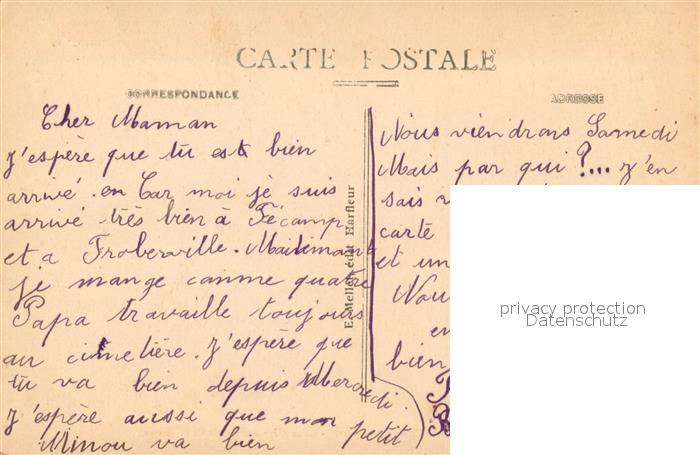 CARTE POSTALE
CORRESPONDANCE
ADRESSE
Cher Maman
J'espère que tu est bien
arrivé. en Car moi je suis
arrivé très bien à Fécamp
et a Froberville. Maintenant
je mange comme quatre
Papa travaille toujours
au cimetière. J'espère que
tu va bien depuis Mercredi.
J'espère aussi que mon petit
Minou va bien
E. Mellet, édit Harfleur
Nous viendrons Samedi
Mais par qui ?... J'en
sais
carte
et un
Nou
en
bien
privacy protection
Datenschutz